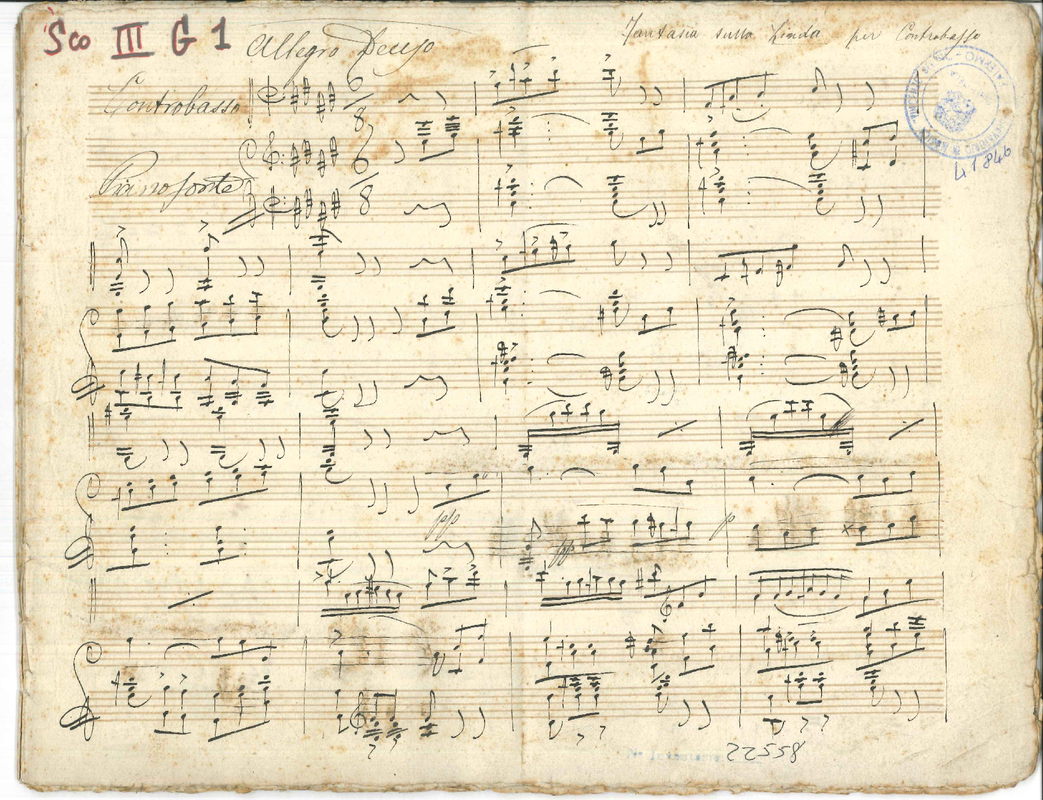 Sco III G 1
Allegro Deciso
Fantasia sulla Linda per Contrabasso
Controbasso
6/8
41846
6/8
Pianoforte
6/8
ppp
ppp
p
22558